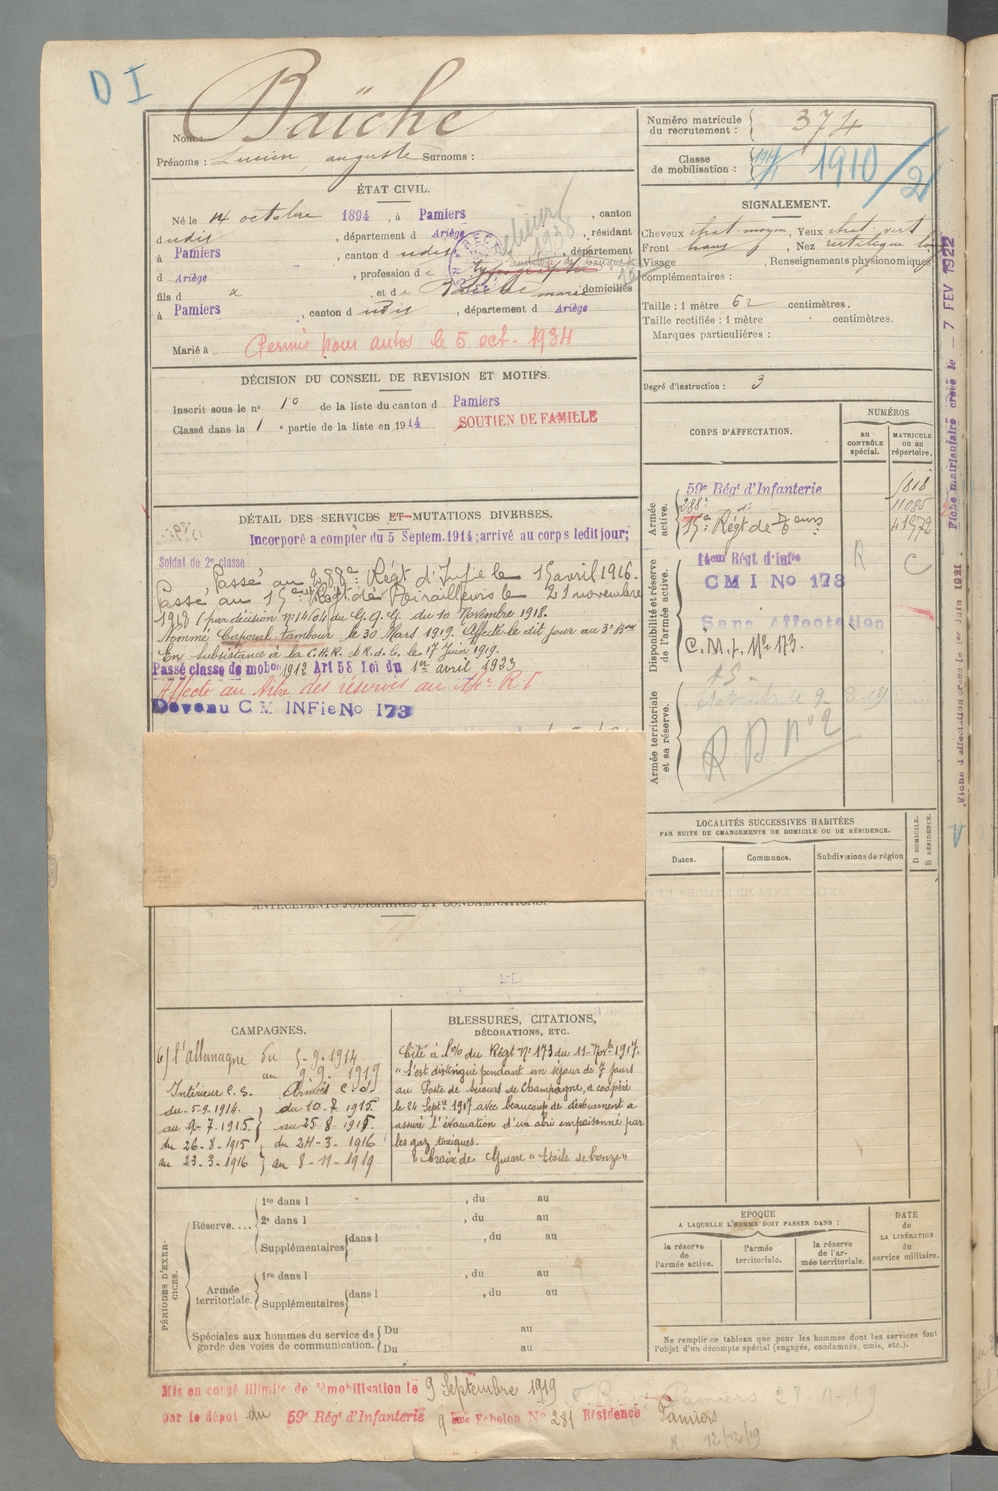 D I
Nom : Baïche
Prénoms : Lucien auguste Surnoms :
Numéro matricule
du recrutement : 374
Classe
de mobilisation : 1910/2
ÉTAT CIVIL.
Né le 14 octobre 1894, à Pamiers, canton
dudit, département d Ariège, résidant
à Pamiers, canton d udit, département
d Ariège, profession de
fils d x et de Baïche marie domiciliés
à Pamiers, canton d udit, département d Ariège
Marié à
Permis pour autos le 5 oct. 1934
SIGNALEMENT.
Cheveux chat. moyen, Yeux chat vert
Front, Nez rectiligne
Visage, Renseignements physionomiques
complémentaires :
Taille : 1 mètre 62 centimètres.
Taille rectifiée : 1 mètre centimètres.
Marques particulières :
Degré d'instruction : 3
DÉCISION DU CONSEIL DE REVISION ET MOTIFS.
Inscrit sous le n° 10 de la liste du canton d Pamiers
Classé dans la 1 e partie de la liste en 1914 SOUTIEN DE FAMILLE
DÉTAIL DES SERVICES ET MUTATIONS DIVERSES.
Incorporé a compter du 5 Septem. 1914; arrivé au corps ledit jour;
Soldat de 2e classe
Passé au 288e Régt d'Inf ie le 15 avril 1916.
Passé au 15e Régt de Tirailleurs le 21 novembre
1918 (par décision n° 14604 du G.Q.G. du 10 Novembre 1918.
Nommé Caporal tambour le 30 Mars 1919. Affecté le dit jour au 3e Bon
En subsistance à la C.H.R. le 17 Juin 1919.
Passé classe de mobon 1912 Art 58 loi du 1er avril 1923
Affecté au titre des réserves au
Devenu C M INFie No 173
CORPS D'AFFECTATION.
NUMÉROS
AU
CONTRÔLE
spécial.
MATRICULE
OU AU
répertoire.
Armée
active.
59e Régt d'Infanterie
288e
15e Régt de
11085
41972
Disponibilité et réserve
de l'armée active.
14eme Régt d'Infie
C M I No 173 R C
Sans Affectation
C.M.I. No 173.
Armée territoriale
et sa réserve.
Fiche matriculaire créée le 7 FEV 1922
LOCALITÉS SUCCESSIVES HABITÉES
PAR SUITE DE CHANGEMENTS DE DOMICILE OU DE RÉSIDENCE.
Dates.
Communes.
Subdivisions de région
D DOMICILE.
R RÉSIDENCE.
ANTÉCÉDENTS JUDICIAIRES ET CONDAMNATIONS.
CAMPAGNES.
l'allemagne du 5-9-1914
au 9-9-1919
Intérieur C.S. Armées C.D.
du 5-9-1914. du 10-7 1915
au 9-7-1915 au 25-8-1915
du 26-8-1915 du 24-3-1916
au 23-3-1916 au 8-11-1919
BLESSURES, CITATIONS,
DÉCORATIONS, ETC.
Cité à l'o/o du Régt No 173 du 11-Novbre 1917.
"S'est distingué pendant un séjour de 7 jours
au Poste de Secours de Champagne, a coopéré
le 24 Septre 1917 avec beaucoup de dévouement a
assuré l'évacuation d'un abri empoisonné par
les gaz toxiques.
Croix de Guerre "Etoile de bronze"
PÉRIODES D'EXERCICES.
Réserve....
1re dans l, du au
2e dans l, du au
Supplémentaires dans l, du au
Armée
territoriale.
1re dans l, du au
Supplémentaires dans l, du au
Spéciales aux hommes du service de
garde des voies de communication.
Du au
Du au
EPOQUE
A LAQUELLE L'HOMME DOIT PASSER DANS :
la réserve
de
l'armée active.
l'armée
territoriale.
la réserve
de l'ar-
mée territoriale.
DATE
de
LA LIBÉRATION
du
service militaire.
Ne remplir ce tableau que pour les hommes dont les services font
l'objet d'un décompte spécial (engagés, condamnés, omis, etc.).
Mis en congé illimité de démobilisation le 9 Septembre 1919
par le dépot du 59e Régt d'Infanterie 9 ème Echelon No 281 Résidence Pamiers
12/12/19